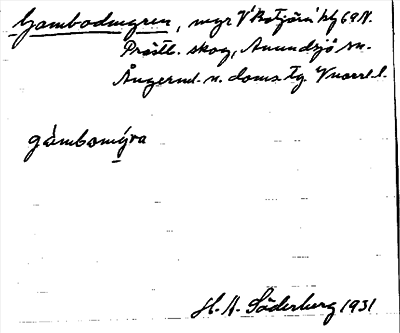 Gambodmyren, myr V Botsjön kf 69 N.
Prästl. skog, Anundsjö sn.
Ångerml. n. doms. tg. Vnorrl. l.
gámbomỳra
H. A. Söderberg 1931